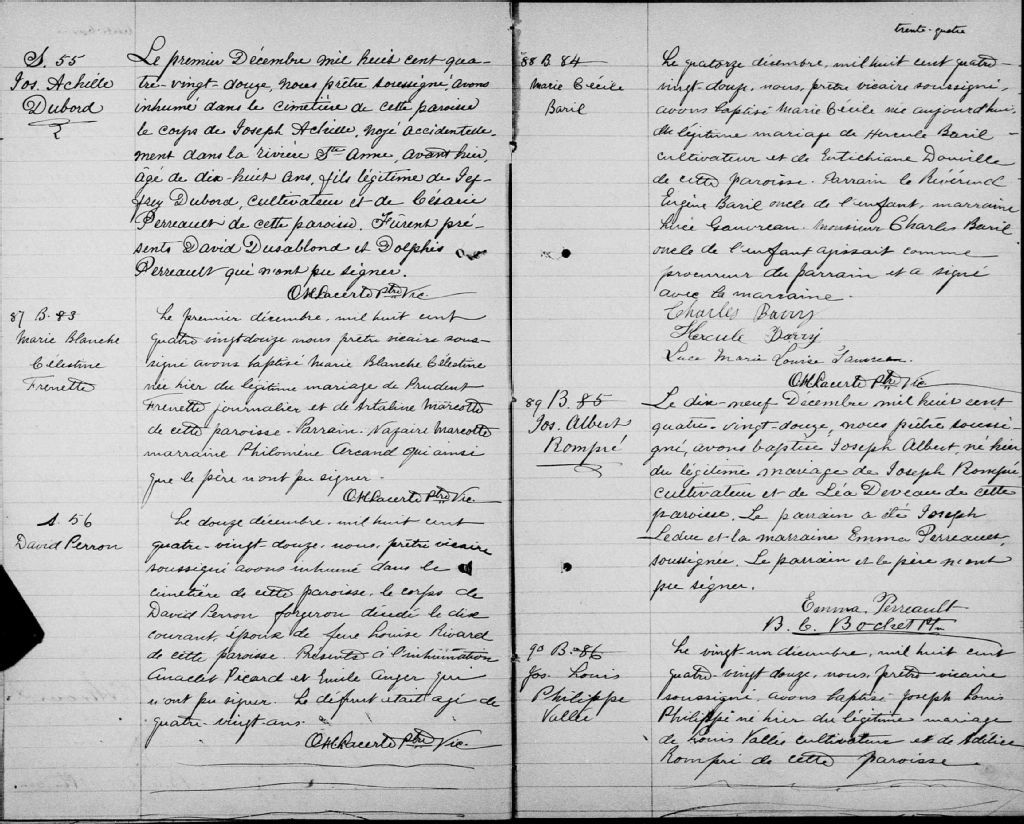 S. 55
Jos. Achille
Dubord
Le premier Décembre mil huit cent qua-
tre-vingt-douze, nous prêtre soussigné, avons
inhumé dans le cimetière de cette paroisse
le corps de Joseph Achille, noyé accidentelle-
ment dans la rivière Ste Anne, avant hier,
âgé de dix-huit ans, fils légitime de Jef-
frey Dubord, cultivateur et de Césarie
Perreault de cette paroisse. Fûrent pré-
sents David Dusablond et Dolphis
Perreault qui n'ont pu signer.
O.H. Lacerte Ptre Vic.
87 B. 83
Marie Blanche
Célestine
Frenette
Le premier décembre, mil huit cent
quatre vingt douze nous prêtre vicaire sous-
signé avons baptisé Marie Blanche Célestine
née hier du légitime mariage de Prudent
Frenette journalier et de Artaline Marcotte
de cette paroisse. Parrain. Nazaire Marcotte
marraine Philomène Arcand qui ainsi
que le père n'ont pu signer.
O.H. Lacerte Ptre Vic.
S. 56
David Perron
Le douze décembre, mil huit cent
quatre-vingt-douze, nous, prêtre vicaire
soussigné avons inhumé dans le
cimetière de cette paroisse, le corps de
David Perron forgeron décédé le dix
courant, époux de feue Louise Rivard
de cette paroisse. Présents à l'inhumation
Anaclet Picard et Emile Anger qui
n'ont pu signer. Le défunt était agé de
quatre-vingt-ans.
O.H. Lacerte Ptre Vic.
trente-quatre
88 B 84
Marie Cécile
Baril
Le quatorze décembre, mil huit cent quatre
vingt-douze, nous, prêtre vicaire soussigné,
avons baptisé Marie Cécile née aujourd'hui,
du légitime mariage de Hercule Baril
cultivateur et de Eutichiane Douville
de cette paroisse. Parrain le Révérend
Eugène Baril oncle de l'enfant, marraine
Luce Gauvreau. Monsieur Charles Baril
oncle de l'enfant agissait comme
procureur du parrain et a signé
avec la marraine.
Charles Barry
Hercule Barry
Luce Marie Louise
O.H. Lacerte Ptre Vic
89 B. 85
Jos. Albert
Rompré
Le dix-neuf Décembre mil huit cent
quatre-vingt-douze, nous prêtre soussi-
gné, avons baptisé Joseph Albert, né hier
du légitime mariage de Joseph Rompré
cultivateur et de Léa Deveau de cette
paroisse. Le parrain a été Joseph
Leduc et la marraine Emma Perreault,
soussignée. Le parrain et le père n'ont
pu signer.
Emma Perreault
B. C. Bochet Pt.
90 B. 86
Jos. Louis
Philippe
Vallée
Le vingt un décembre, mil huit cent
quatre vingt douze, nous, prêtre vicaire
soussigné, avons baptisé Joseph Louis
Philippe né hier du légitime mariage
de Louis Vallée cultivateur et de
Rompré de cette paroisse